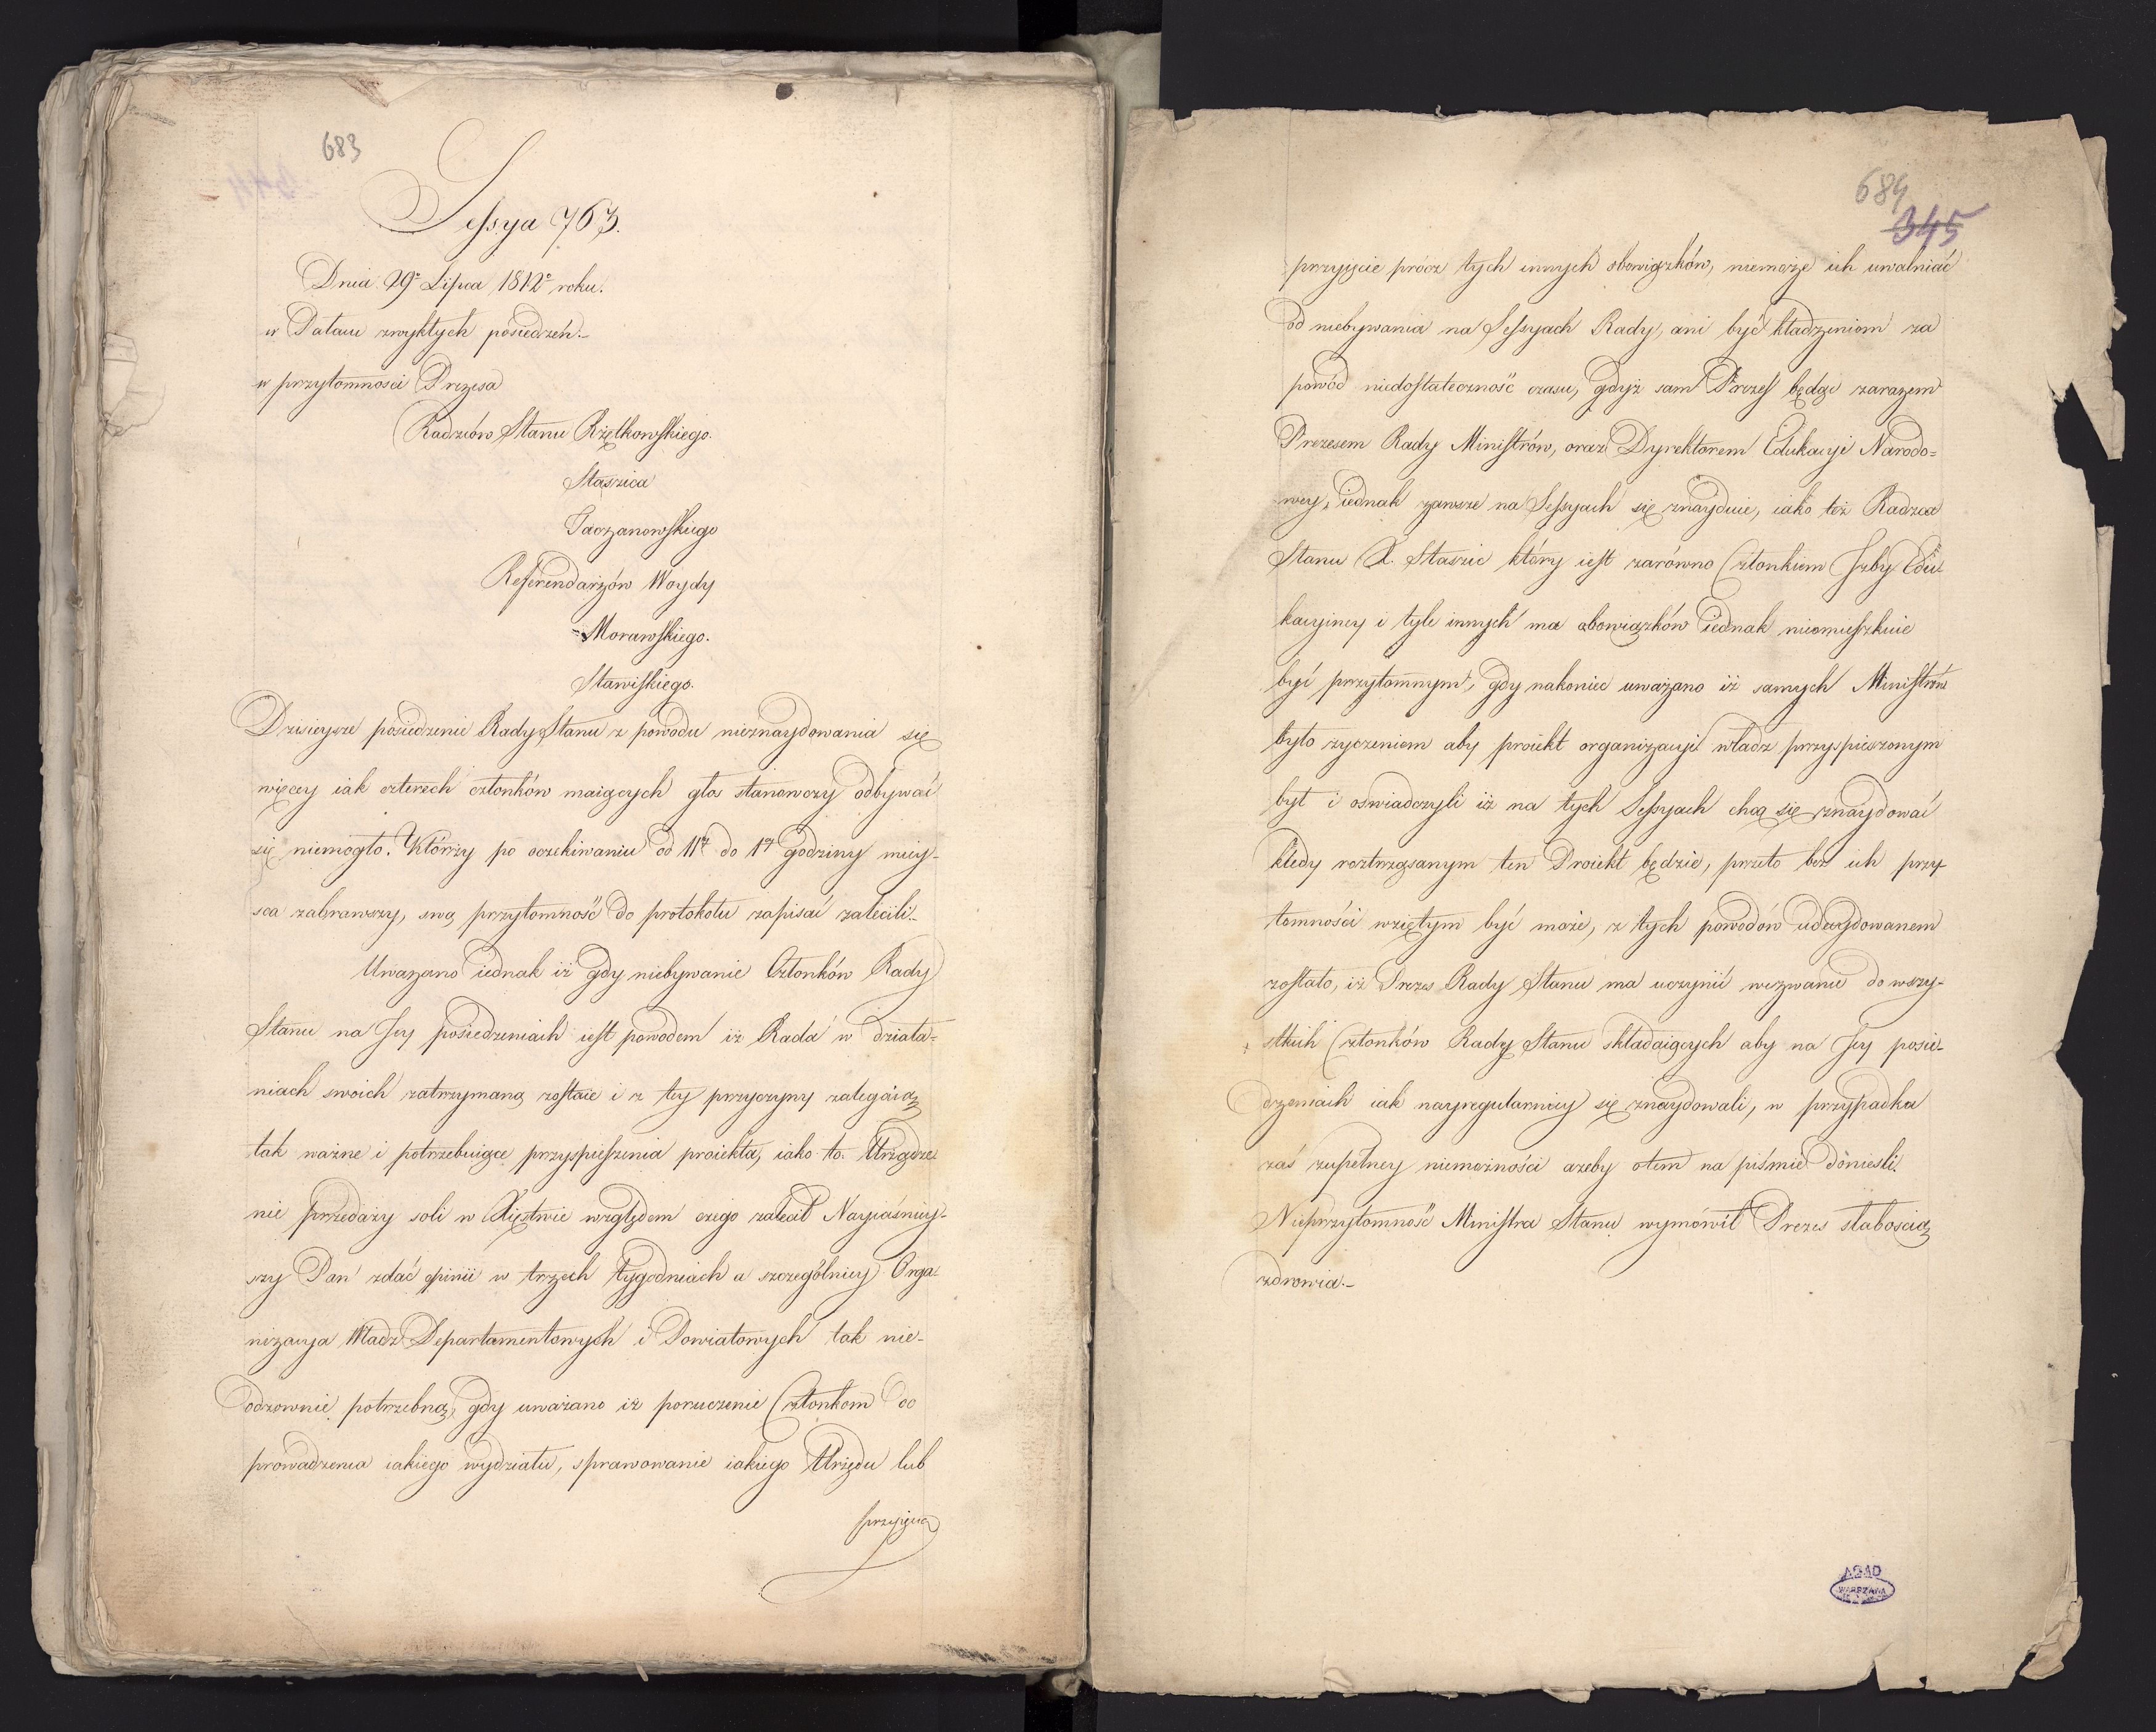 683
Sessya 763.
Dnia 29º Lipca 1812º roku.
w Pałacu zwykłych posiedzeń.–
w przytomności Prezesa
Radzców Stanu Rzętkowskiego.
Staszica
Taczanowskiego
Referendarzów Woydy
Morawskiego.
Stawiskiego.
Dzisieysze posiedzenie Rady Stanu z powodu nieznaydowania się
więcey iak czterech członków maiących głos stanowczy odbywać
się niemogło. Którzy po oczekiwaniu od 11ey do 1ey godziny miey-
sca zabrawszy, swą przytomność do protokołu zapisać zalecili.–
Uważano iednak iż gdy niebywanie Członków Rady
Stanu na Jey posiedzeniach iest powodem iż Rada w działa-
niach swoich zatrzymaną zostaie i z tey przyczyny zalegaią
tak ważne i potrzebuiące przyspieszenia proiekta, iako to. Urządze-
nie przedaży soli w Xięstwie względem czego zalecił Nayiaśniey-
szy Pan zdać opinii w trzech tygodniach a szczególniey Orga-
nizacya Władz Departamentowych i Powiatowych tak nie-
odzownie potrzebną, gdy uważano iż poruczenie Członkom do
prowadzenia iakiego wydziału, sprawowanie iakiego Urzędu lub
przyięcie
684
345
przyięcie prócz tych innych obowiązków, niemoże ich uwalniać
od niebywania na Sessyach Rady, ani być kładzeniom za
powód niedostateczność czasu, gdyż sam Prezes będąc zarazem
Prezesem Rady Ministrów, oraz Dyrektorem Edukacyi Narodo-
wey, iednak zawsze na Sessyach się znayduie, iako też Radzca
Stanu X. Staszic który iest zarówno Członkiem Izby Edu-
kacyiney i tyle innych ma obowiązków iednak nieomieszkuie
być przytomnym, gdy nakoniec uważano iż samych Ministrów
było życzeniem aby proiekt organizacyi władz przyspieszonym
był i oświadczyli iż na tych Sessyach chcą się znaydować
kiedy roztrząsanym ten Proiekt będzie, przeto bez ich przy-
tomności wziętym być może, z tych powodów udecydowanem
zostało, iż Prezes Rady Stanu ma uczynić wezwanie do wszy-
stkich Członków Rady Stanu składaiących aby na Jey posie-
dzeniach iak nayregularniey się znaydowali, w przypadku
zaś zupełney niemożności ażeby o tem na piśmie donieśli.
Nieprzytomność Ministra Stanu wymówił Prezes słabością
zdrowia.–
AGAD
WARSZAWA